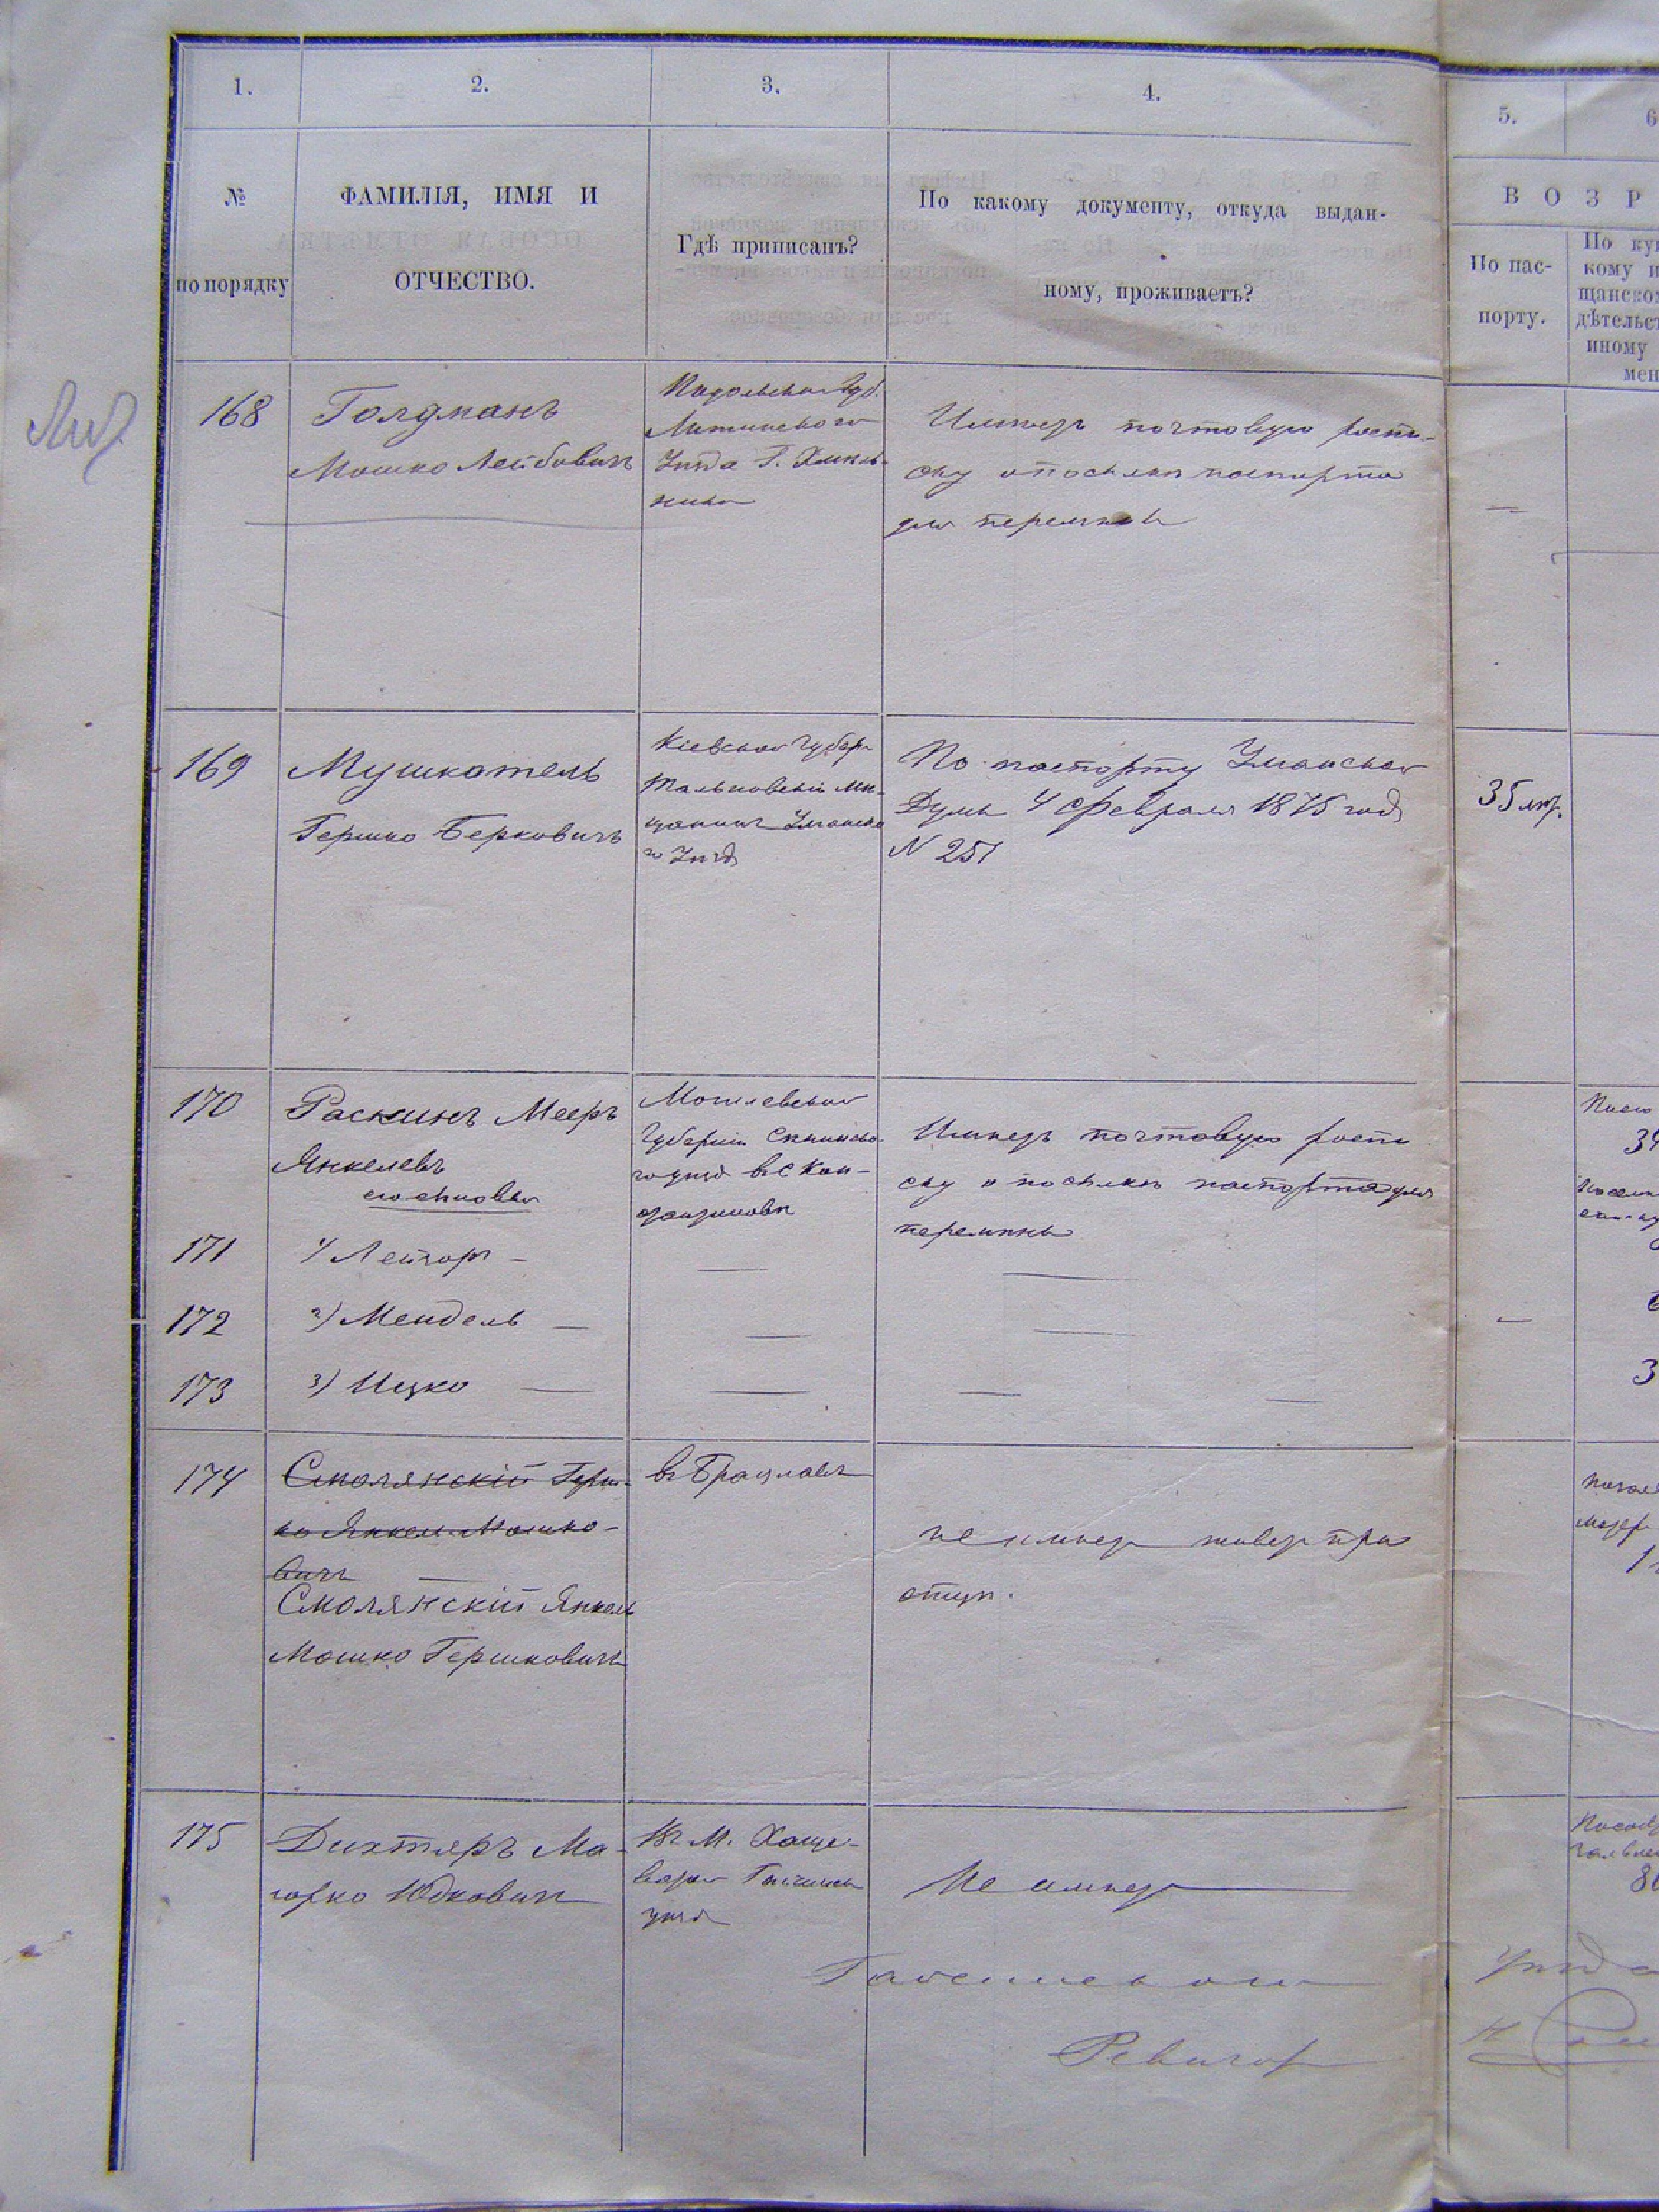 1.
2.
3.
4.
5.
6
№
по порядку
ФАМИЛІЯ, ИМЯ И
ОТЧЕСТВО.
Гдѣ приписанъ?
По какому документу, откуда выдан-
ному, проживаетъ?
В О З Р
По пас-
порту.
По ку
кому и
щанско
дѣтельс
иному
мен
168
Голдманъ
Мошко Лейбовичъ
Подольской Губ.
Литинскаго
Уѣзда Г. Хмель-
ника
Имѣетъ почтовую роспи-
ску о посылкѣ паспорта
для перемѣны
—
169
Мушкатель
Гершко Берковичъ
Кіевской Губер.
Тальновскій мѣ-
щанинъ Уманска
го Уѣзда
По паспорту Уманской
Думы 4 Февраля 1875 года
N 251
35 лѣт.
170
Раскинъ Мееръ
Янкелевъ
его сыновья
Могилевской
Губерніи Сѣнинско-
го уѣзда
Имѣетъ почтовую роспи
ску о посылкѣ паспорта для
перемѣны
34
171
1)
—
172
2) Мендель —
173
3) Ицко —
3
174
Смолянскій Герш-
ко Янкель Мошко-
вичъ
Смолянскій Янкель
Мошко Гершковичъ
въ Брацлавѣ
не имѣетъ живетъ при
отцѣ.
175
Дихтяръ Ма-
Юдковичъ
Въ М. Хаще-
ватое
уѣзда
Не имѣетъ
Гайсинскаго
Ревизор
Уѣзда